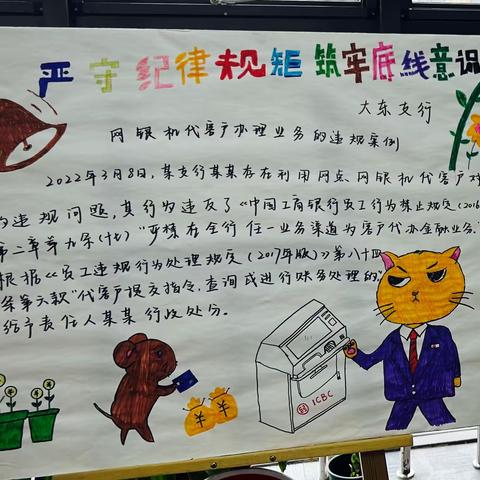 严守纪律规矩 筑牢底线意识
大东支行
网银机代客户办理业务的违规案例
2022年3月8日,某支行某某存在利用网点、网银机代客户对
的违规问题,其行为违反了《中国工商银行员工行为禁止规定(2016
第二章第九条(七)"严禁在全行任一业务渠道为客户代办金融业务。
根据《员工违规行为处理规定(2017年版)》第八十四
条第六款"代客户提交指令、查询或进行账务处理的"
给予责任人某某行政处分。
ICBC
¥ ¥